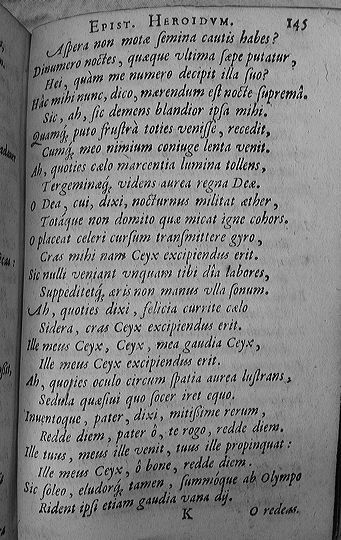 EPIST. HEROIDVM. 145
Aspera non motæ semina cautis habes?
Dinumero noctes, quæque vltima sæpe putatur,
Hei, quàm me numero decipit illa suo?
Hâc mihi nunc, dico, mærendum est nocte supremâ.
Sic, ah, sic demens blandior ipsa mihi.
Quamq; puto frustrà toties venisse, recedit,
Cumq; meo nimium coniuge lenta venit.
Ah, quoties cælo marcentia lumina tollens,
Tergeminæq; videns aurea regna Deæ.
O Dea, cui, dixi, nocturnus militat æther,
Totaque non domito quæ micat igne cohors.
O placeat celeri cursum transmittere gyro,
Cras mihi nam Ceyx excipiendus erit.
Sic nulli veniant vnquam tibi dia labores,
Suppeditetq; æris non manus vlla sonum.
Ah, quoties dixi, felicia currite cælo
Sidera, cras Ceyx excipiendus erit.
Ille meus Ceyx, Ceyx, mea gaudia Ceyx,
Ille meus Ceyx excipiendus erit.
Ah, quoties oculo circum spatia aurea lustrans,
Sedula quæsiui quo socer iret equo.
Inuentoque, pater, dixi, mitissime rerum,
Redde diem, pater ô, te rogo, redde diem.
Ille tuus, meus ille venit, tuus ille propinquat:
Ille meus Ceyx, ô bone, redde diem.
Sic soleo, eludorq; tamen, summoque ab Olympo
Rident ipsi etiam gaudia vana dij.
K O redeas.